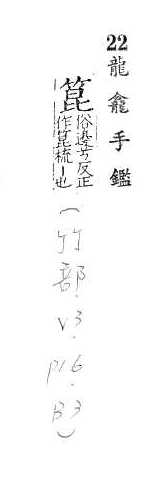 22 龍龕手鑑
箟 俗邊兮反正
作箆梳丨也
(竹部.V3.P16.B3)